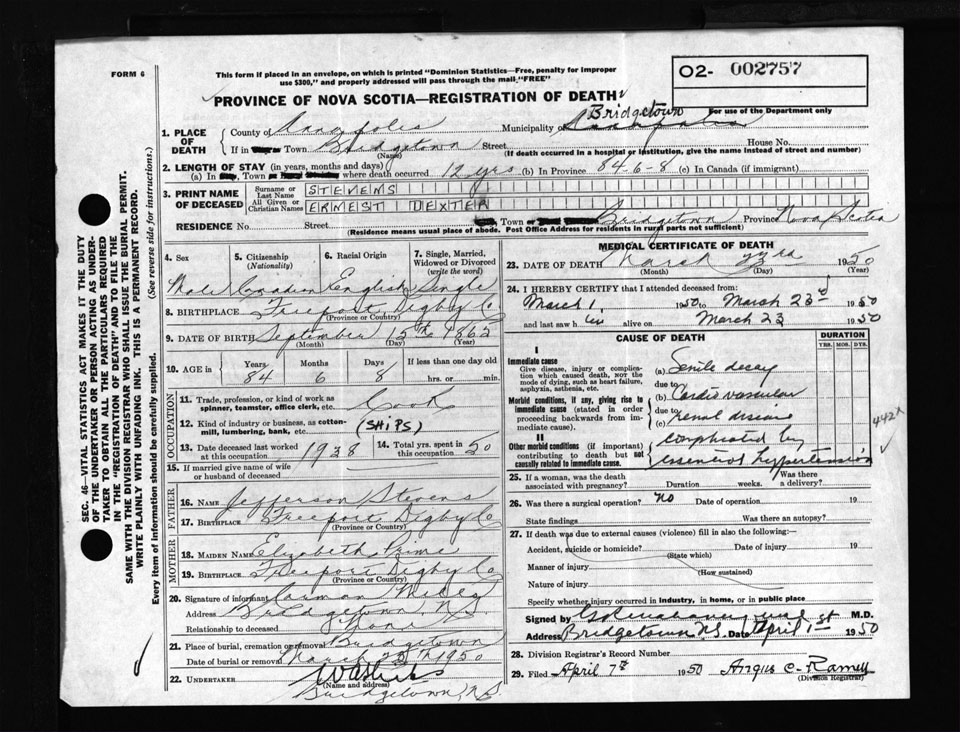 FORM 6
This form if placed in an envelope, on which is printed "Dominion Statistics—Free, penalty for improper
use $300," and properly addressed will pass through the mail, "FREE"
O2- 002757
PROVINCE OF NOVA SCOTIA—REGISTRATION OF DEATH
For use of the Department only
Bridgetown
1. PLACE OF DEATH
County of Annapolis Municipality of
If in Town Bridgetown Street House No.
(Name) (If death occurred in a hospital or institution, give the name instead of street and number)
2. LENGTH OF STAY (in years, months and days)
(a) In Town where death occurred 12 yrs (b) In Province 84-6-8 (c) In Canada (if immigrant)
3. PRINT NAME OF DECEASED
Surname or Last Name STEVENS
All Given or Christian Names ERNEST DEXTER
RESIDENCE No. Street Town Bridgetown Province Nova Scotia
(Residence means usual place of abode. Post Office Address for residents in rural parts not sufficient)
4. Sex 5. Citizenship (Nationality) 6. Racial Origin 7. Single, Married, Widowed or Divorced (write the word)
Male Canadian English Single
8. BIRTHPLACE Freeport Digby Co
(Province or Country)
9. DATE OF BIRTH September 15th 1865
(Month) (Day) (Year)
10. AGE in Years Months Days If less than one day old
84 6 8 hrs. or min.
OCCUPATION
11. Trade, profession or kind of work as spinner, teamster, office clerk, etc. Cook
12. Kind of industry or business, as cotton-mill, lumbering, bank, etc. (SHIPS)
13. Date deceased last worked at this occupation 1938 14. Total yrs. spent in this occupation 50
15. If married give name of wife or husband of deceased
FATHER
16. NAME Jefferson Stevens
17. BIRTHPLACE Freeport Digby Co
(Province or Country)
MOTHER
18. MAIDEN NAME Elizabeth Prime
19. BIRTHPLACE Freeport Digby Co
(Province or Country)
20. Signature of informant
Address Bridgetown, N.S.
Relationship to deceased none
21. Place of burial, cremation or removal Bridgetown
Date of burial or removal March 25th 1950
22. UNDERTAKER
(Name and address)
Bridgetown, N.S.
MEDICAL CERTIFICATE OF DEATH
23. DATE OF DEATH March 23rd 1950
(Month) (Day) (Year)
24. I HEREBY CERTIFY that I attended deceased from:
March 1 1950 to March 23d 1950
and last saw him alive on March 23 1950
CAUSE OF DEATH
DURATION
YRS. MOS. DYS.
I
Immediate cause
Give disease, injury or complication which caused death, not the mode of dying, such as heart failure, asphyxia, asthenia, etc.
(a) Senile decay
due to
Morbid conditions, if any, giving rise to immediate cause (stated in order proceeding backwards from immediate cause).
(b) Cardio vascular
due to
(c) renal disease
II
Other morbid conditions (if important) contributing to death but not causally related to immediate cause.
complicated by
essential hypertension
442X
25. If a woman, was the death associated with pregnancy? Duration weeks. Was there a delivery?
26. Was there a surgical operation? No Date of operation 19
State findings Was there an autopsy?
27. If death was due to external causes (violence) fill in also the following:—
Accident, suicide or homicide? Date of injury 19
(State which)
Manner of injury
(How sustained)
Nature of injury
Specify whether injury occurred in industry, in home, or in public place
Signed by M.D.
Address Bridgetown N.S. Date April 1st 1950
28. Division Registrar's Record Number
29. Filed April 7th 1950 Angus C. Ramey
(Division Registrar)
SEC. 46—VITAL STATISTICS ACT MAKES IT THE DUTY
OF THE UNDERTAKER OR PERSON ACTING AS UNDERTAKER
TO OBTAIN ALL THE PARTICULARS REQUIRED
IN THE "REGISTRATION OF DEATH" AND TO FILE THE
SAME WITH THE DIVISION REGISTRAR WHO SHALL ISSUE THE BURIAL PERMIT.
WRITE PLAINLY WITH UNFADING INK. THIS IS A PERMANENT RECORD.
Every item of Information should be carefully supplied. (See reverse side for instructions.)